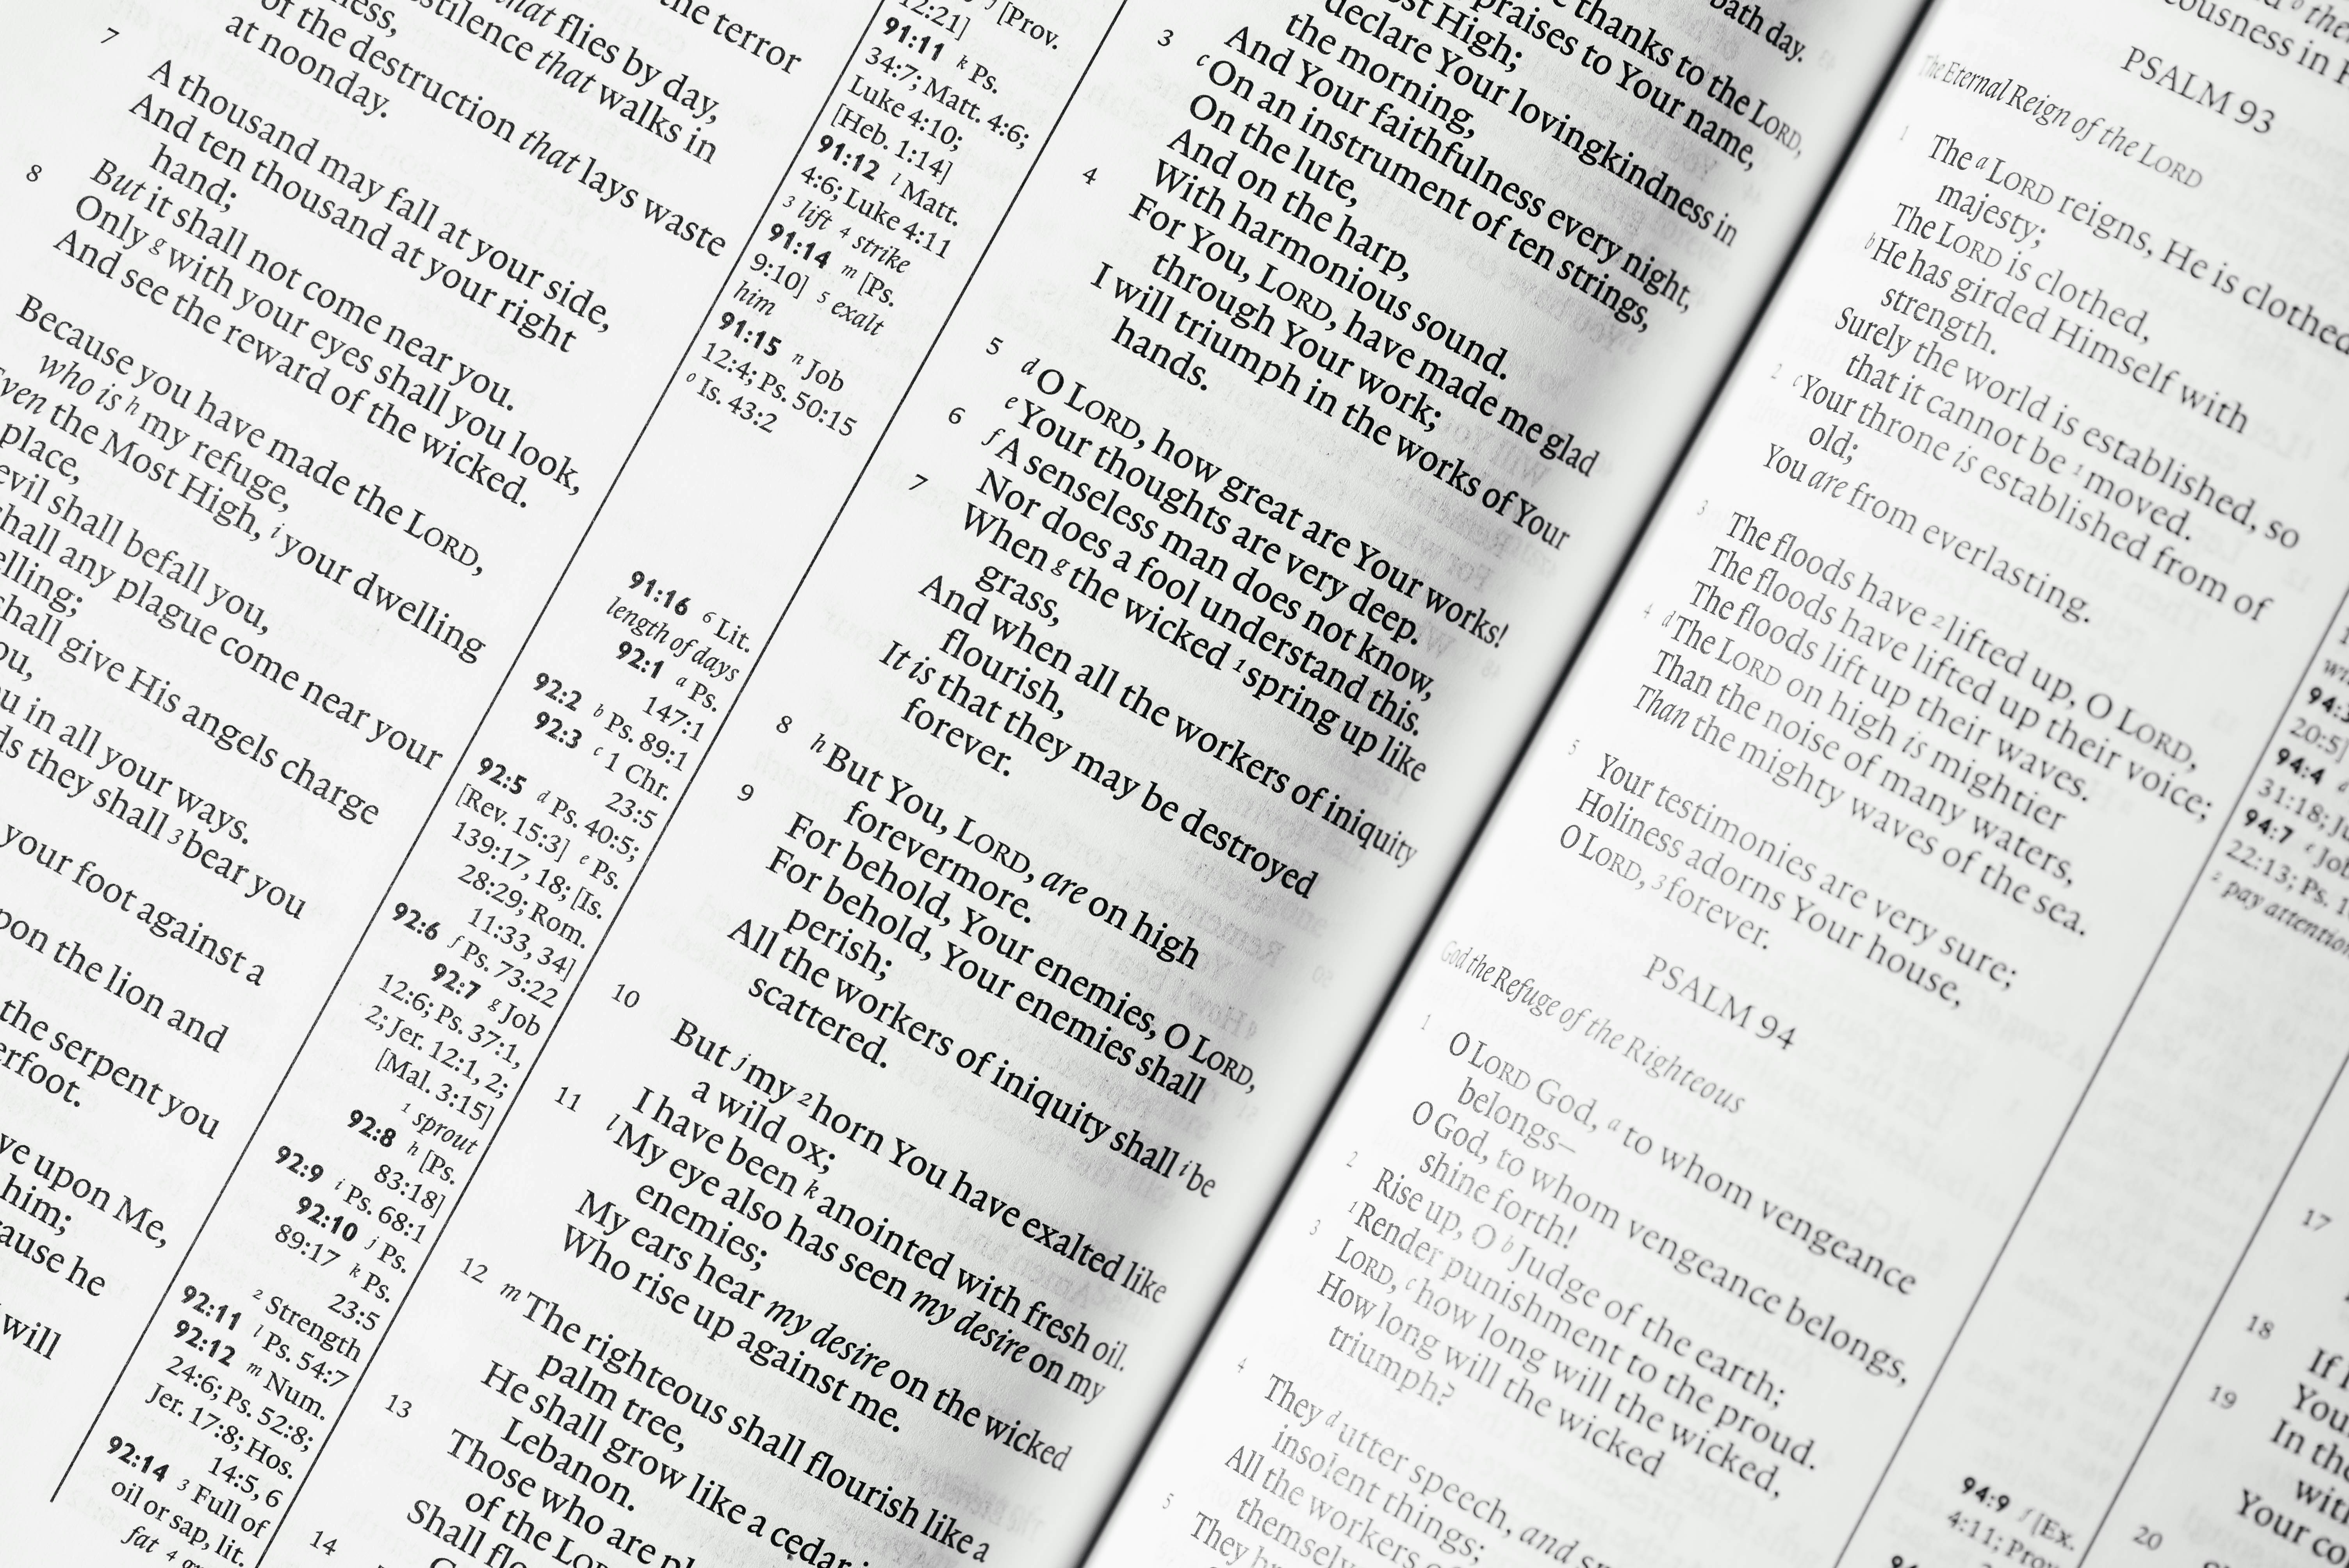 the terror
that flies by day,
stilence that walks in
of the destruction that lays waste
at noonday.
7 A thousand may fall at your side,
And ten thousand at your right
hand;
But it shall not come near you.
8 Only g with your eyes shall you look,
And see the reward of the wicked.
Because you have made the LORD,
who is h my refuge,
Even the Most High, i your dwelling
place,
evil shall befall you,
shall any plague come near your
elling;
shall give His angels charge
ou,
in all your ways.
ds they shall 3 bear you
your foot against a
pon the lion and
the serpent you
erfoot.
ve upon Me,
him;
ause he
will
12:21] j [Prov.
91:11 k Ps.
34:7; Matt. 4:6;
Luke 4:10;
[Heb. 1:14]
91:12 l Matt.
4:6; Luke 4:11
3 lift 4 strike
91:14 m [Ps.
9:10] 5 exalt
him
91:15 n Job
12:4; Ps. 50:15
o Is. 43:2
91:16 6 Lit.
length of days
92:1 a Ps.
147:1
92:2 b Ps. 89:1
92:3 c 1 Chr.
23:5
92:5 d Ps. 40:5;
[Rev. 15:3] e Ps.
139:17, 18; [Is.
28:29; Rom.
11:33, 34]
92:6 f Ps. 73:22
92:7 g Job
12:6; Ps. 37:1,
2; Jer. 12:1, 2;
[Mal. 3:15]
1 sprout
92:8 h [Ps.
83:18]
92:9 i Ps. 68:1
92:10 j Ps.
89:17 k Ps.
23:5
2 Strength
92:11 l Ps. 54:7
92:12 m Num.
24:6; Ps. 52:8;
Jer. 17:8; Hos.
14:5, 6
92:14 3 Full of
oil or sap, lit.
fat 4
bath day.
thanks to the LORD,
praises to Your name,
ost High;
declare Your lovingkindness in
the morning,
And Your faithfulness every night,
3 c On an instrument of ten strings,
On the lute,
And on the harp,
With harmonious sound.
4 For You, LORD, have made me glad
through Your work;
I will triumph in the works of Your
hands.
5 d O LORD, how great are Your works!
e Your thoughts are very deep.
6 f A senseless man does not know,
Nor does a fool understand this.
7 When g the wicked 1 spring up like
grass,
And when all the workers of iniquity
flourish,
It is that they may be destroyed
forever.
8 h But You, LORD, are on high
forevermore.
9 For behold, Your enemies, O LORD,
For behold, Your enemies shall
perish;
All the workers of iniquity shall i be
scattered.
10 But j my 2 horn You have exalted like
a wild ox;
I have been k anointed with fresh oil.
11 l My eye also has seen my desire on my
enemies;
My ears hear my desire on the wicked
Who rise up against me.
12 m The righteous shall flourish like a
palm tree,
He shall grow like a cedar
Lebanon.
13 Those who are
of the LORD
Shall
14
ousness in
PSALM 93
The Eternal Reign of the LORD
1 The a LORD reigns, He is clothed
majesty;
The LORD is clothed,
b He has girded Himself with
strength.
Surely the world is established, so
that it cannot be 1 moved.
2 c Your throne is established from of
old;
You are from everlasting.
3 The floods have 2 lifted up, O LORD,
The floods have lifted up their voice;
The floods lift up their waves.
4 d The LORD on high is mightier
Than the noise of many waters,
Than the mighty waves of the sea.
5 Your testimonies are very sure;
Holiness adorns Your house,
O LORD, 3 forever.
PSALM 94
God the Refuge of the Righteous
1 O LORD God, a to whom vengeance
belongs—
O God, to whom vengeance belongs,
shine forth!
2 Rise up, O b Judge of the earth;
1 Render punishment to the proud.
3 LORD, c how long will the wicked,
How long will the wicked
triumph?
4 They d utter speech, and
insolent things;
All the workers
5 They
94:3
20:5]
94:4
31:18;
94:7 e Job
22:13; Ps. 1
2 pay attention
94:9 f [Ex.
4:11; Prov.
17
18 If
You
19 In the
Your
20